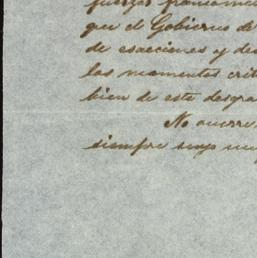 fuerzas
que el Gobierno de
de esacciones y des
los momentos crit
bien de este desgra
No
siempre suyo muy